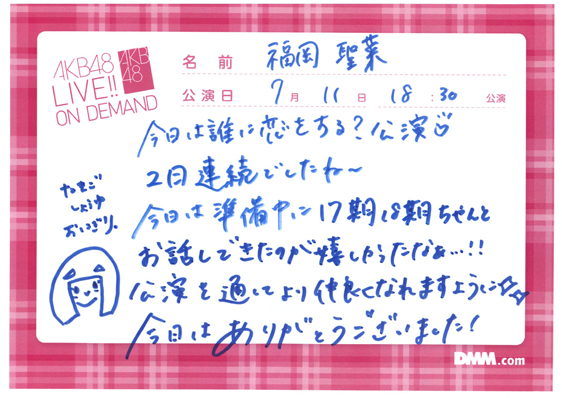 AKB48
LIVE!!
ON DEMAND
AKB
48
名前 福岡 聖菜
公演日 7月 11日 18:30 公演
今日は誰に恋をする?公演
2日連続でしたね〜
今日は準備中に17期18期ちゃんと
お話しできたのが嬉しかったなぁ…!!
公演を通してより仲良くなれますように☆☆
今日はありがとうございました!
たまご
しょうゆ
おにぎり。
DMM.com